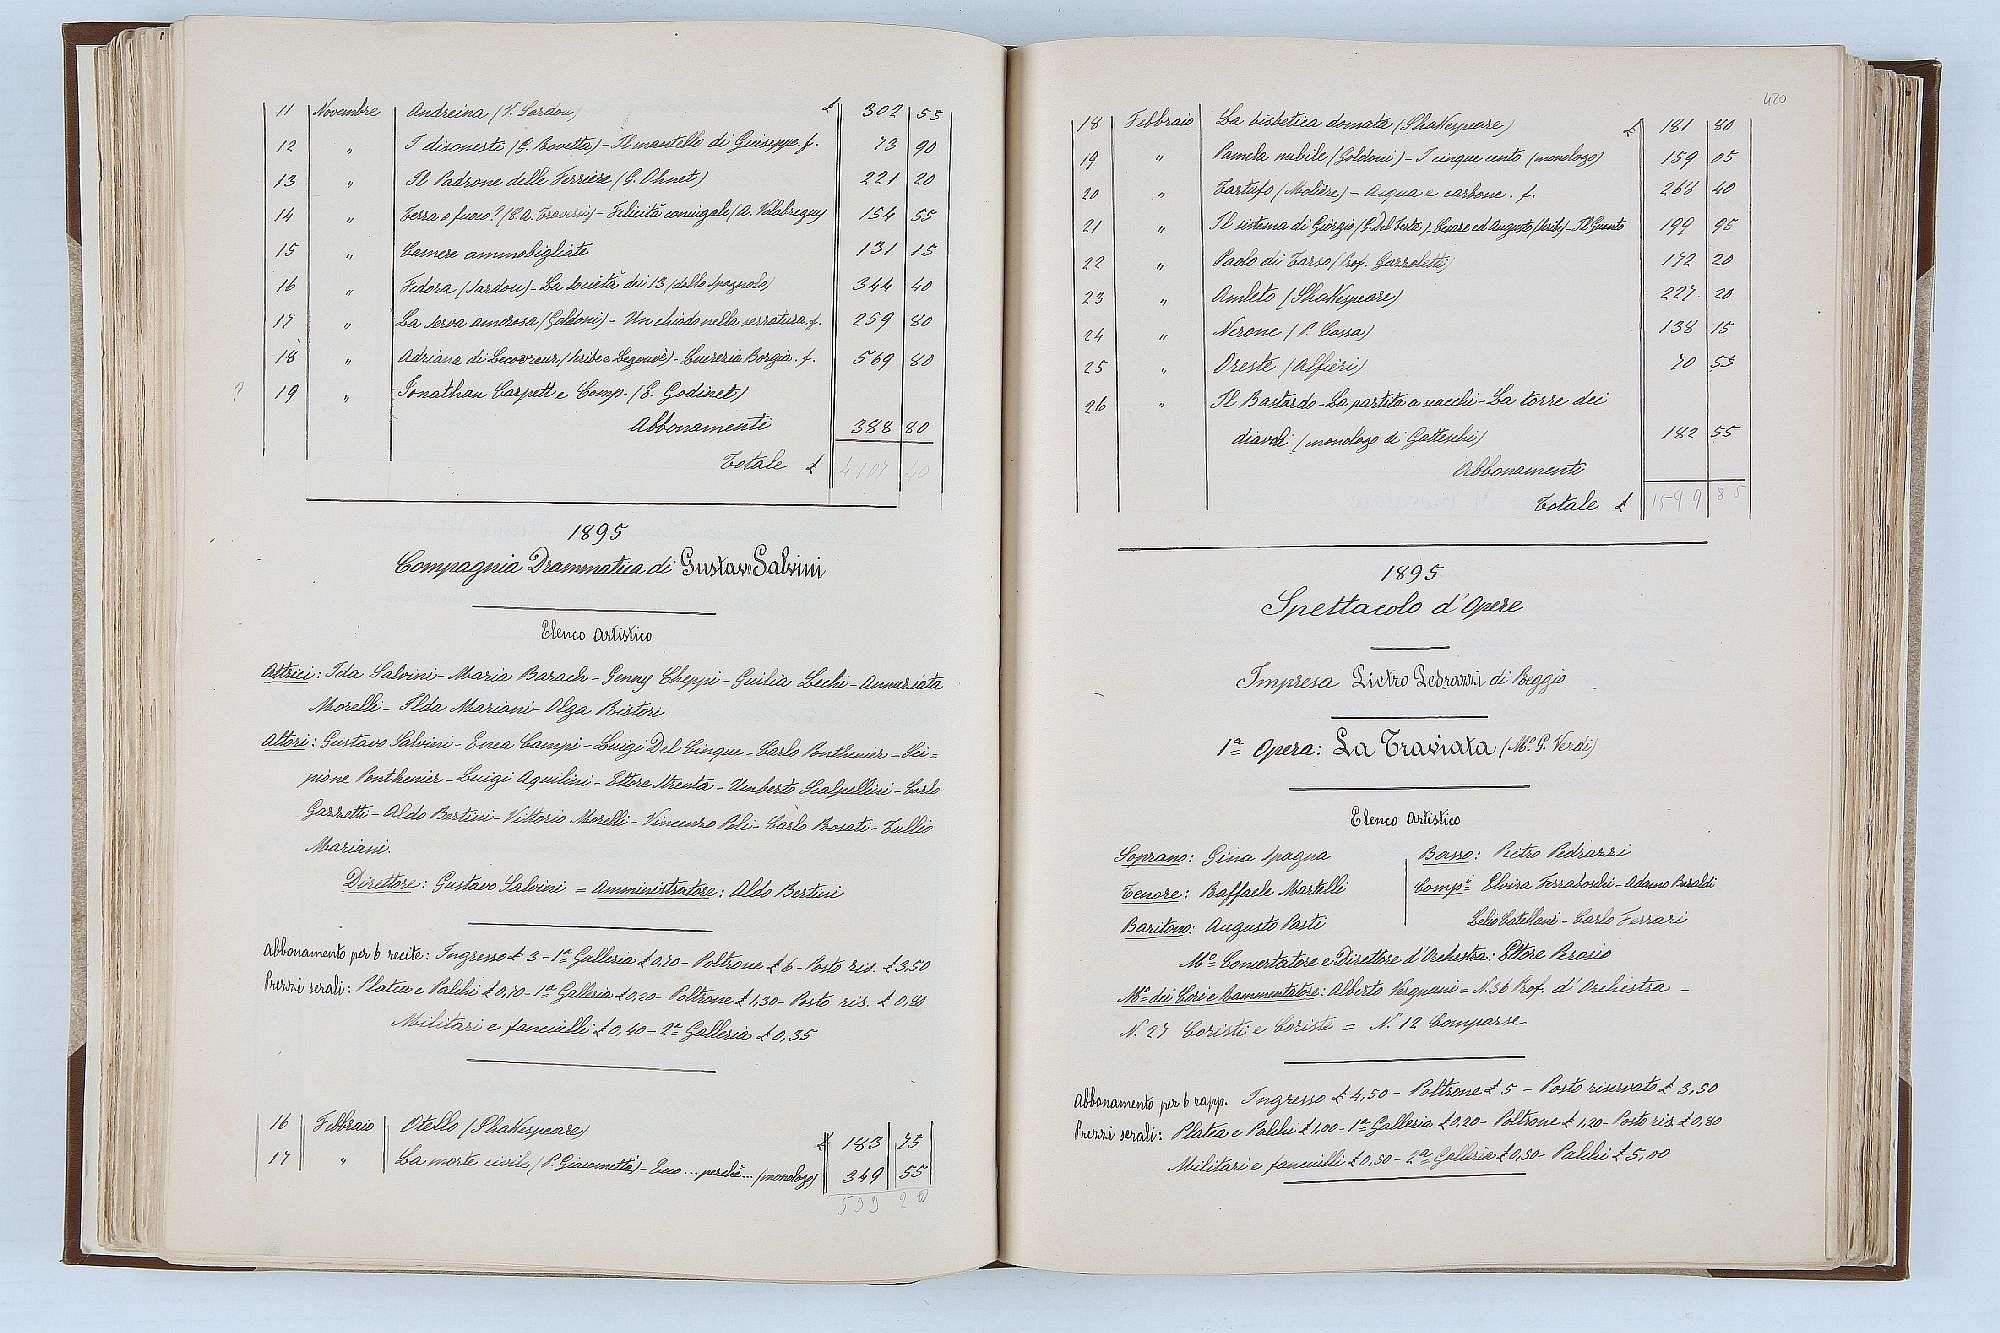 11 Novembre Andreina (V. Sardou) £ 302 55
12 " I disonesti (G. Rovetta) - Il mantello di Giuseppe. f. 73 90
13 " Il Padrone delle Ferriere (G. Ohnet) 221 20
14 " Terra o fuoco? - Felicità coniugale (A. Valabregue) 154 55
15 " Camere ammobigliate 131 15
16 " Fedora (Sardou) - La Società dei 13 (dello Spagnolo) 344 40
17 " La serva amorosa (Goldoni) - Un chiodo nella serratura. f. 259 80
18 " Adriana di Lecovreur (Scribe e Legouvè) - Lucrezia Borgia. f. 569 80
? 19 " Jonathan Carpett e Comp. (E. Godinet)
Abbonamenti 388 80
Totale £ 4107 40
1895
Compagnia Drammatica di Gustavo Salvini
Elenco Artistico
Attrici: Ida Salvini - Maria Barach - Genny Cheppi - Giulia Lechi - Annunziata
Morelli - Ilda Mariani - Olga Ristori
Attori: Gustavo Salvini - Enea Campi - Luigi Del Cinque - Carlo Ponthenier - Sci=
pione Ponthenier - Luigi Aquilini - Ettore Strenta - Umberto Scalpellini - Carlo
Garzotti - Aldo Bertini - Vittorio Morelli - Vincenzo Poli - Carlo Rosati - Tullio
Mariani.
Direttore: Gustavo Salvini = Amministratore: Aldo Bertini
Abbonamento per 6 recite: Ingresso £ 3 - 1ª Galleria £ 0,70 - Poltrone £ 6 - Posto ris. £ 3,50
Prezzi serali: Platea e Palchi £ 0,70 - 1ª Galleria £ 0,20 - Poltrone £ 1,30 - Posto ris. £ 0,80
Militari e fanciulli £ 0,40 - 2ª Galleria £ 0,35
16 Febbraio Otello (Shakespeare) £ 183 75
17 " La morte civile (P. Giacometti) - Ecco... perchè... (monologo) 349 55
533 20
420
18 Febbraio La bisbetica domata (Shakespeare) £ 181 80
19 " Pamela nubile (Goldoni) - I cinque cento (monologo) 159 05
20 " Tartufo (Molière) - Acqua e carbone. f. 268 40
21 " Il sistema di Giorgio (G. Del Testa) - Cesare ed Augusto (Scribe) - Il Guanto 199 95
22 " Paolo di Tarso (Prof. Gazzoletti) 172 20
23 " Amleto (Shakespeare) 227 20
24 " Nerone (P. Cossa) 138 15
25 " Oreste (Alfieri) 70 55
26 " Il Bastardo - La partita a scacchi - La torre dei
diavoli (monologo di Gatteschi) 182 55
Abbonamenti
Totale £ 1599 85
1895
Spettacolo d'Opere
Impresa Pietro Pedrazzi di Reggio
1ª Opera: La Traviata (Mº G. Verdi)
Elenco Artistico
Soprano: Gina Spagna
Tenore: Raffaele Martelli
Baritono: Augusto Posti
Basso: Pietro Pedrazzi
Comp.ri Elvira Ferraboschi - Adamo Buraldi
Lelio Catellani - Carlo Ferrari
Mº Concertatore e Direttore d'Orchestra: Ettore Perosio
Mº dei Cori e Rammentatore: Alberto Vergnani = N. 36 Prof. d'Orchestra -
N. 27 Coristi e Coriste = N. 12 Comparse -
Abbonamento per 6 rapp. Ingresso £ 4,50 - Poltrone £ 5 - Posto riservato £ 3,50
Prezzi serali: Platea e Palchi £ 1,00 - 1ª Galleria £ 0,20 - Poltrone £ 1,20 - Posto ris. £ 0,80
Militari e fanciulli £ 0,50 - 2ª Galleria £ 0,50 - Palchi £ 5,00